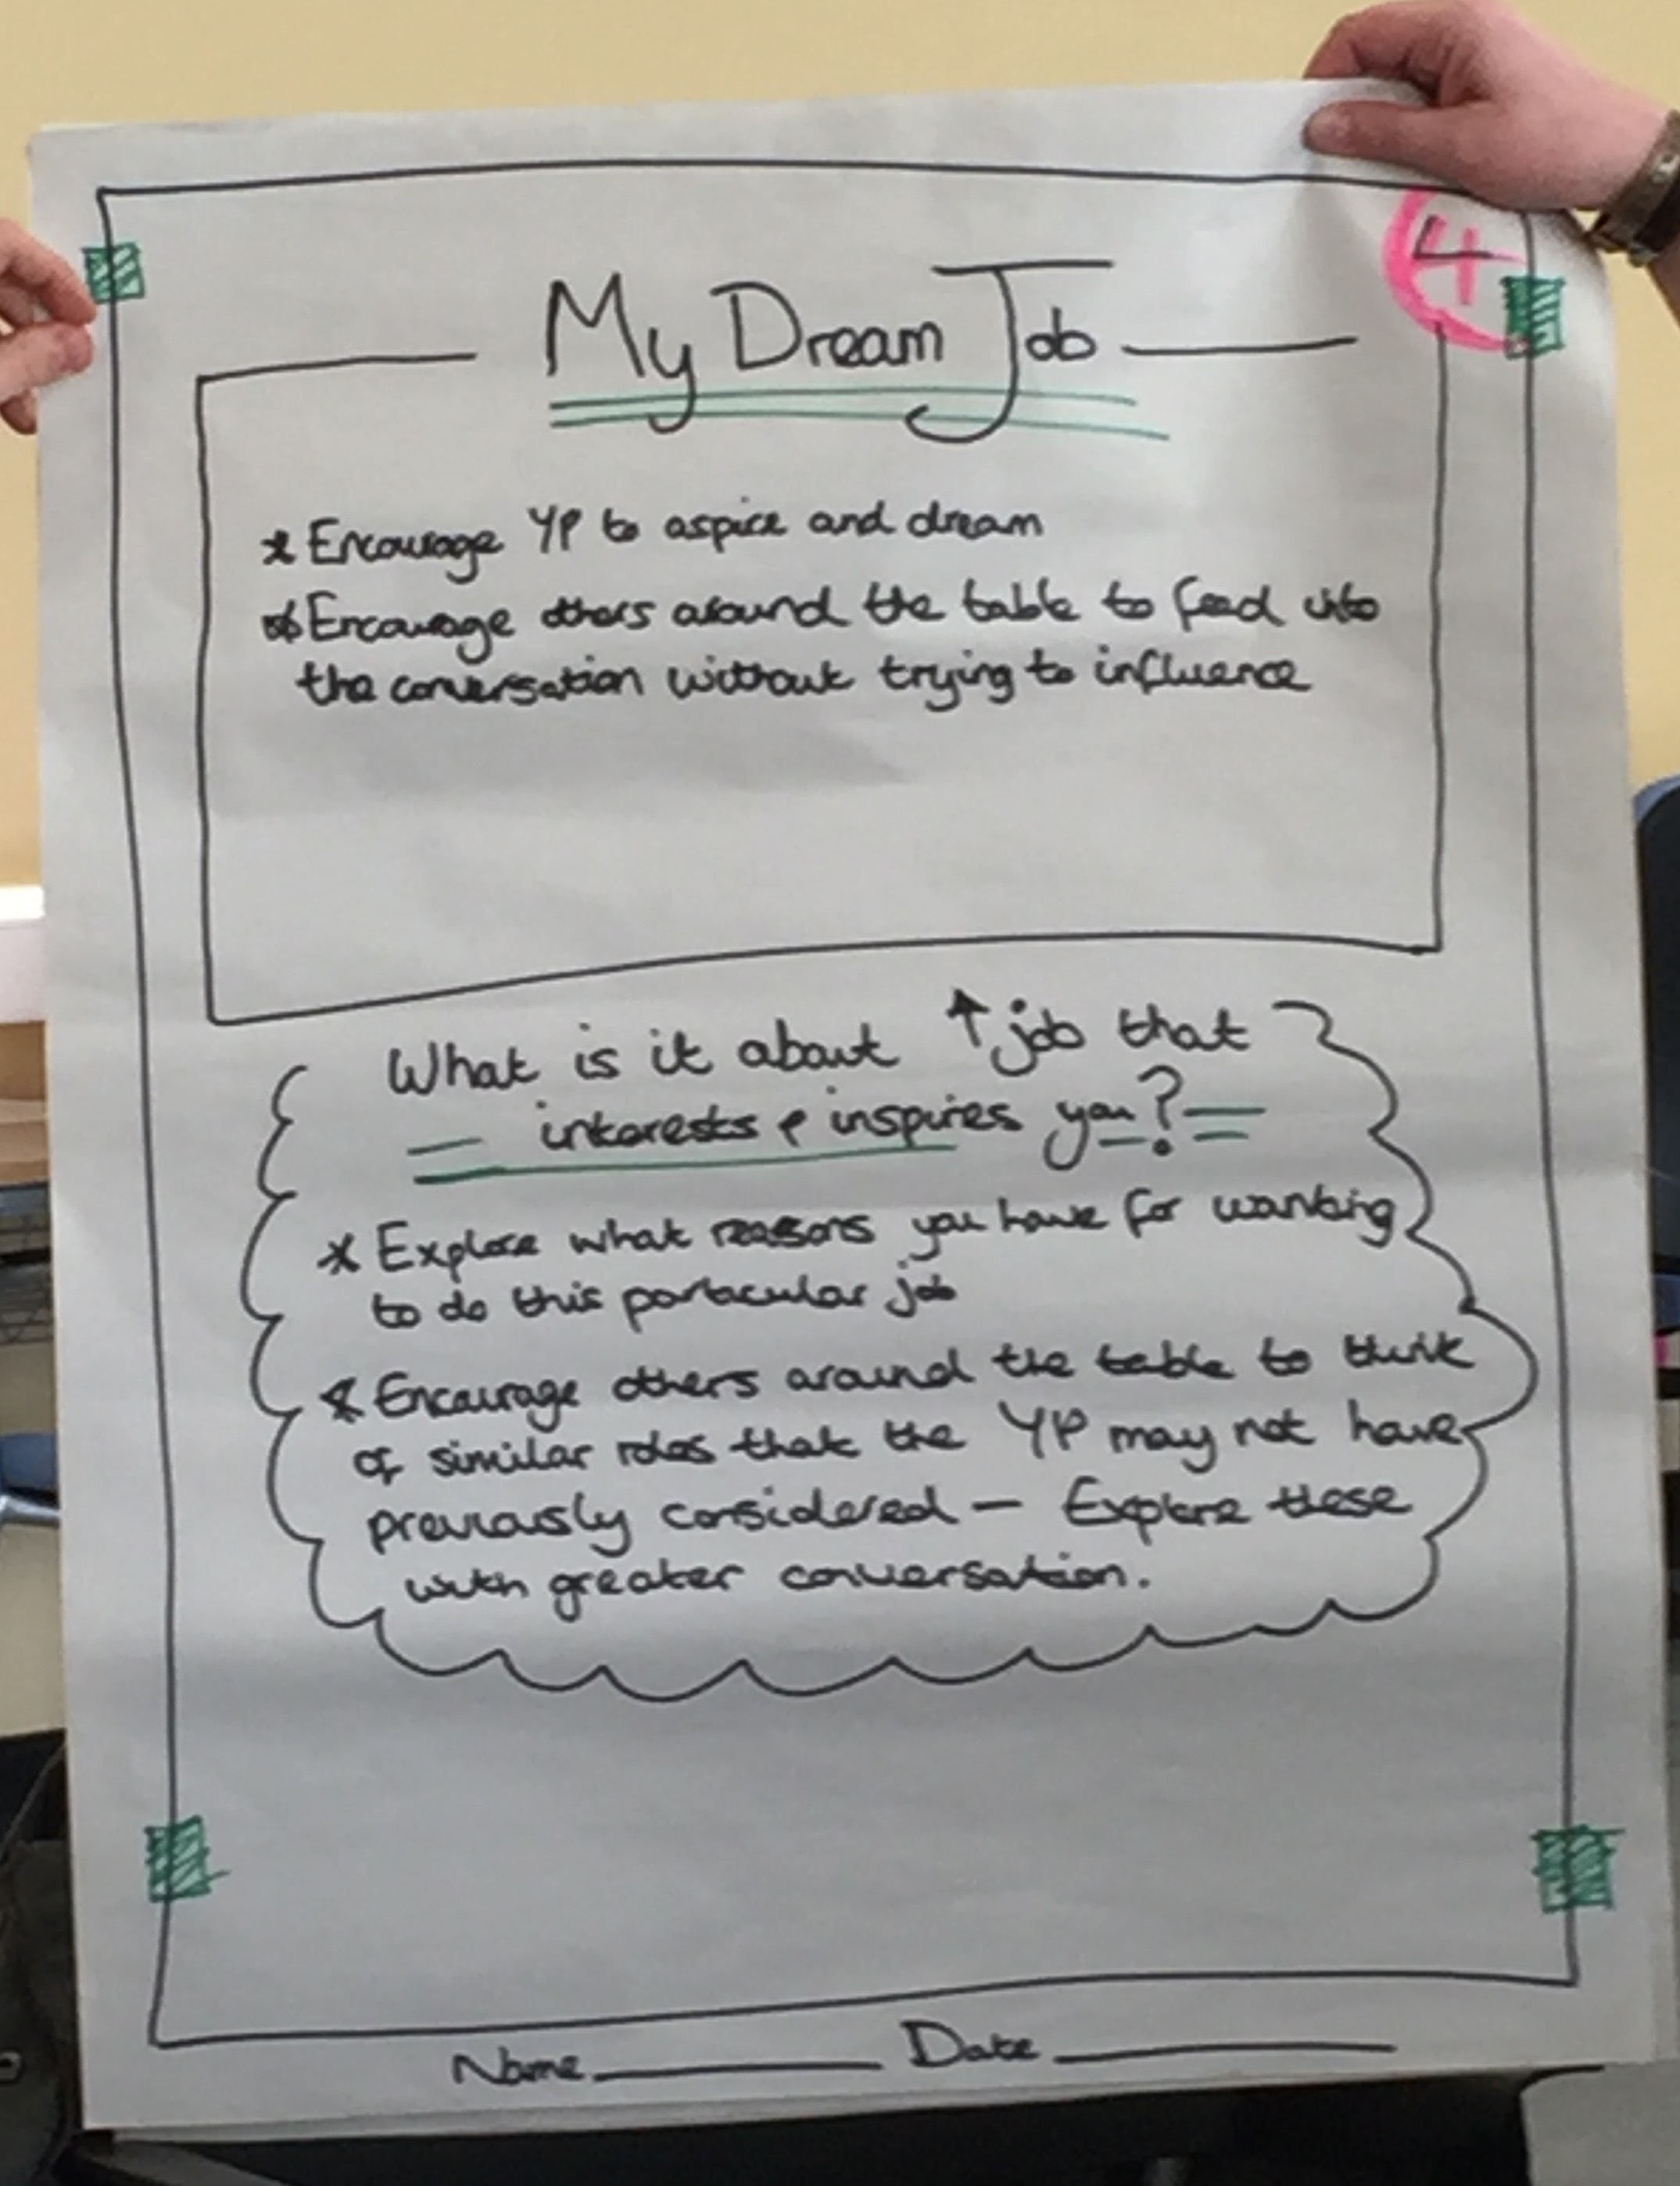 4
My Dream Job
* Encourage YP to aspire and dream
* Encourage others around the table to feed into
the conversation without trying to influence
What is it about ↑ job that
interests & inspires you?
* Explore what reasons you have for wanting
to do this particular job
* Encourage others around the table to think
of similar roles that the YP may not have
previously considered — Explore these
with greater conversation.
Name Date